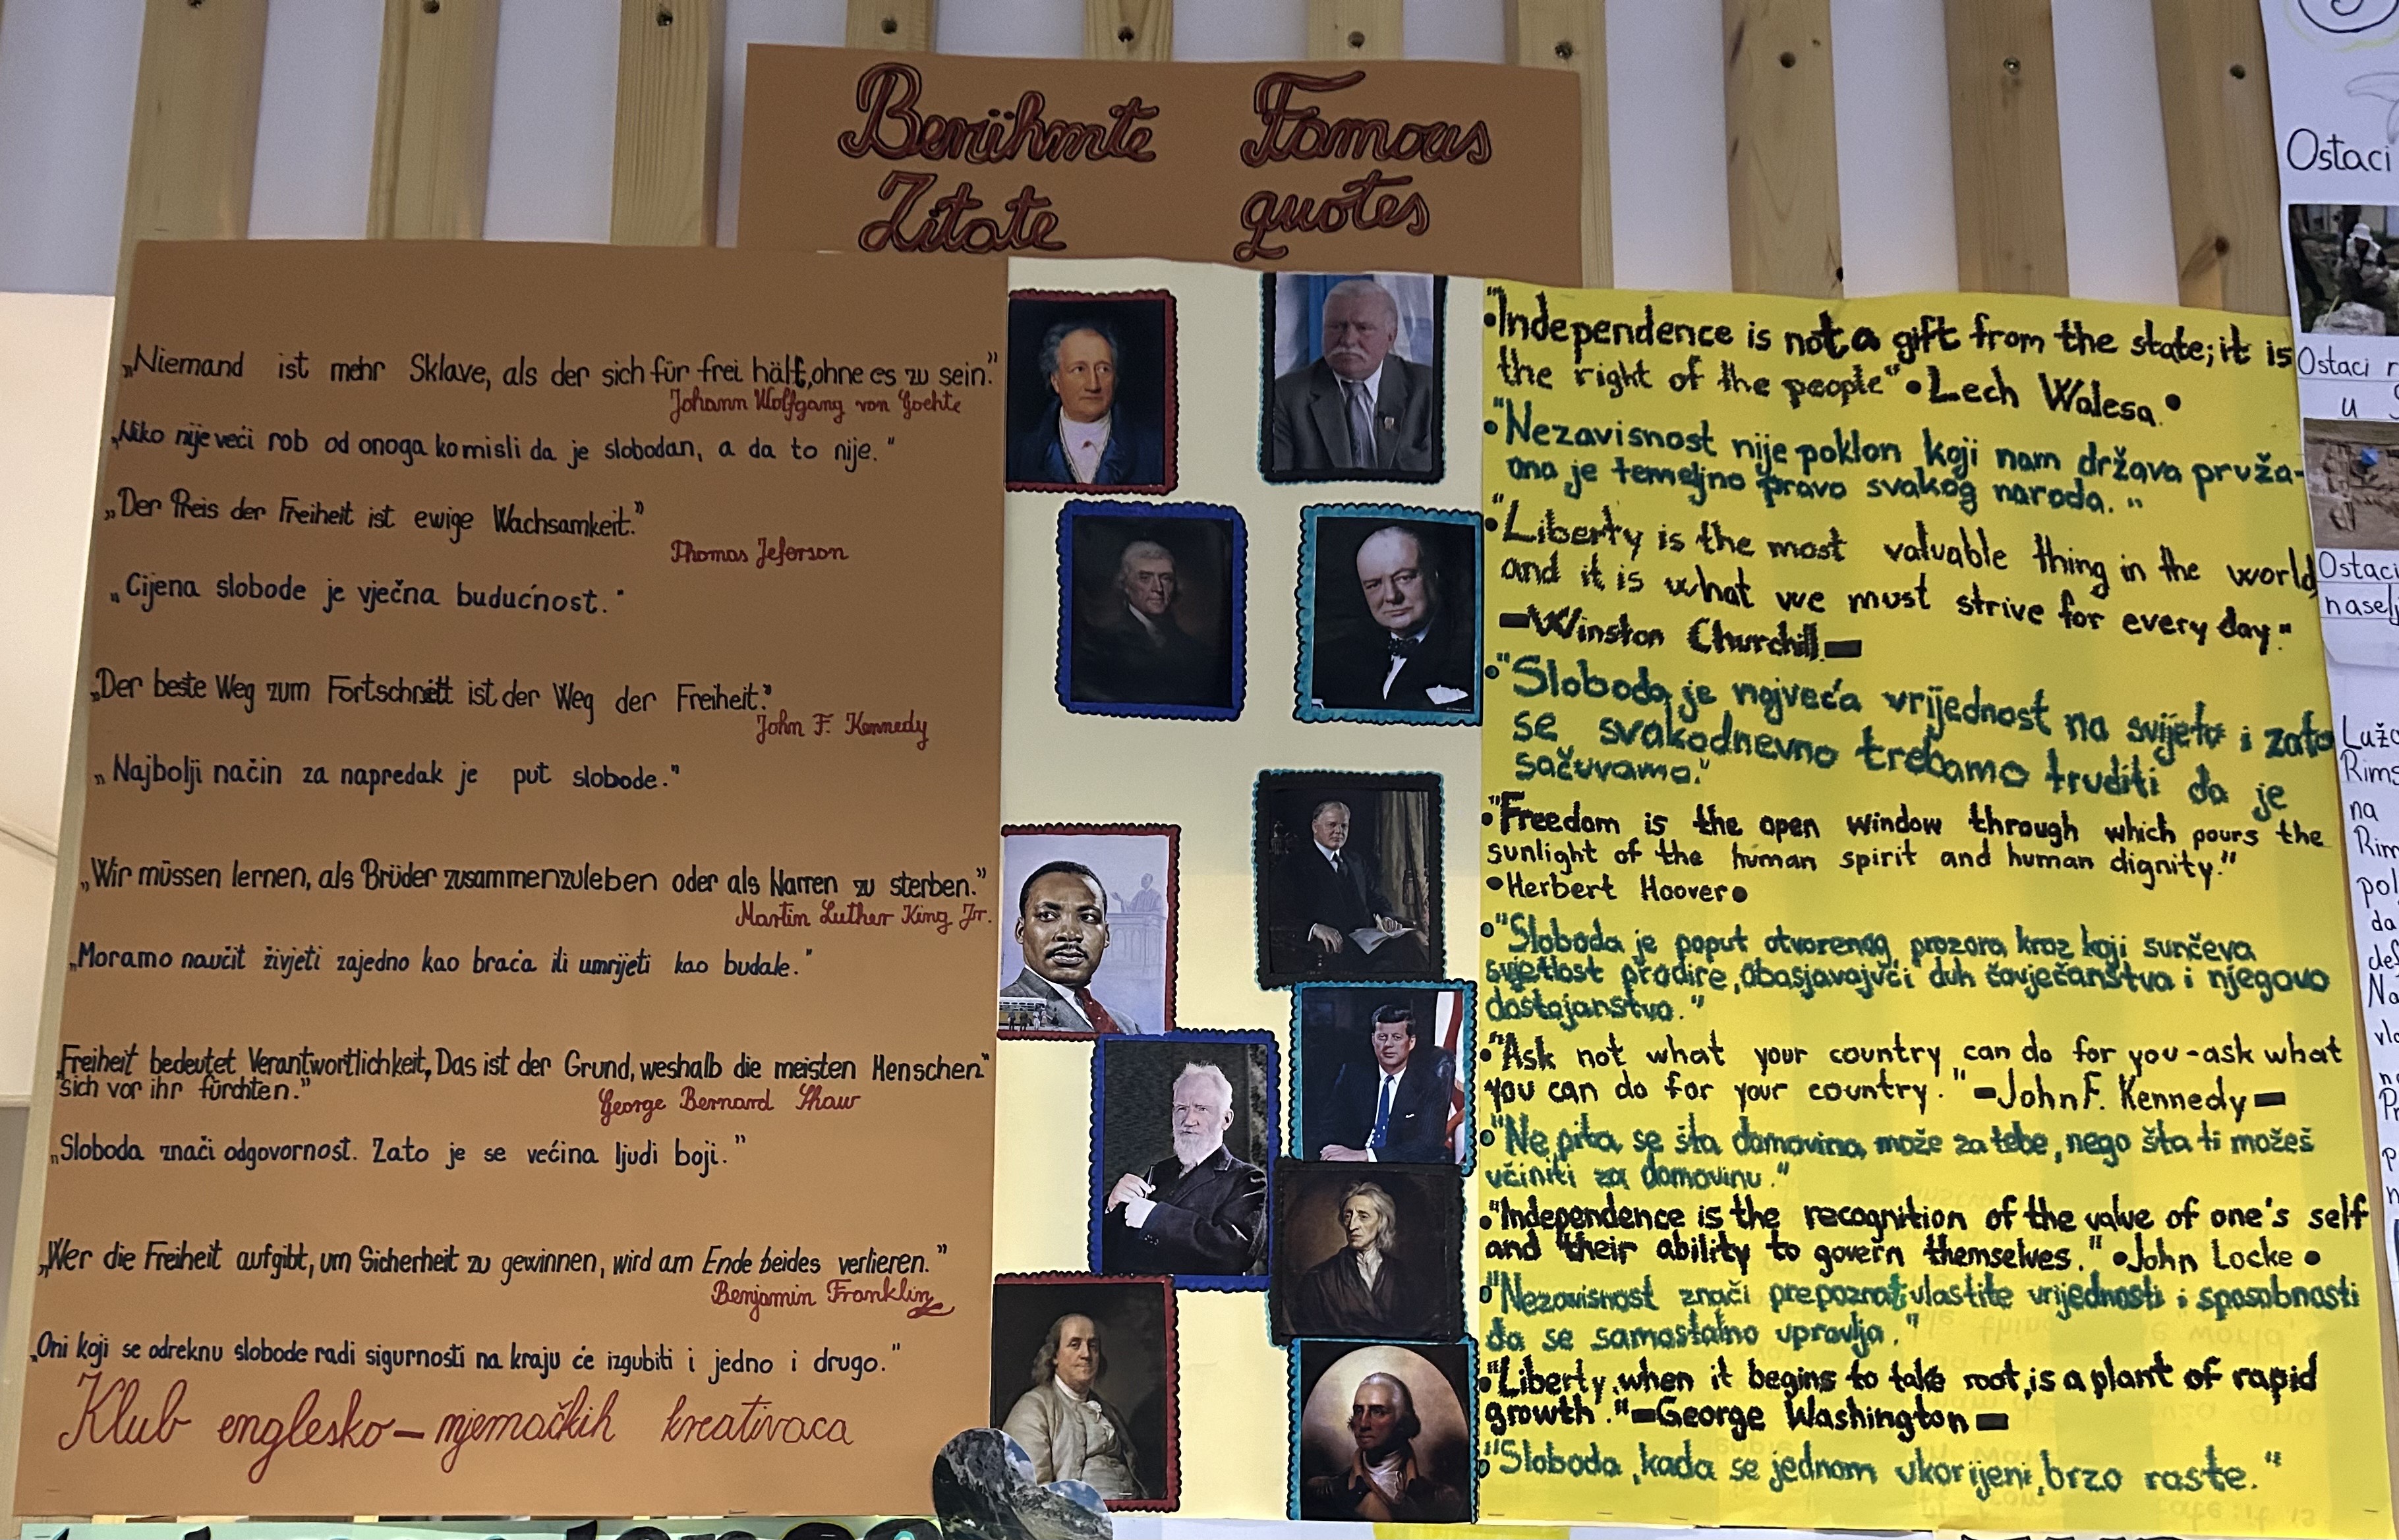 Berühmte
Zitate
Famous
quotes
„Niemand ist mehr Sklave, als der sich für frei hält, ohne es zu sein.”
Johann Wolfgang von Goehte
„Niko nije veći rob od onoga ko misli da je slobodan, a da to nije.”
„Der Preis der Freiheit ist ewige Wachsamkeit.”
Thomas Jeferson
„Cijena slobode je vječna budućnost.”
„Der beste Weg zum Fortschritt ist der Weg der Freiheit.”
John F. Kennedy
„Najbolji način za napredak je put slobode.”
„Wir müssen lernen, als Brüder zusammenzuleben oder als Narren zu sterben.”
Martin Luther King Jr.
„Moramo naučit živjeti zajedno kao braća ili umrijeti kao budale.”
„Freiheit bedeutet Verantwortlichkeit, Das ist der Grund, weshalb die meisten Menschen”
sich vor ihr fürchten.”
George Bernard Shaw
„Sloboda znači odgovornost. Zato je se većina ljudi boji.”
„Wer die Freiheit aufgibt, um Sicherheit zu gewinnen, wird am Ende beides verlieren.”
Benjamin Franklin
„Oni koji se odreknu slobode radi sigurnosti na kraju će izgubiti i jedno i drugo.”
Klub englesko-njemačkih kreativaca
•"Independence is not a gift from the state; it is
the right of the people" • Lech Walesa •
•"Nezavisnost nije poklon koji nam država pruža-
ona je temeljno pravo svakog naroda."
•"Liberty is the most valuable thing in the world
and it is what we must strive for every day."
-Winston Churchill-
•"Sloboda je najveća vrijednost na svijetu i zato
se svakodnevno trebamo truditi da je
sačuvamo."
•"Freedom is the open window through which pours the
sunlight of the human spirit and human dignity."
•Herbert Hoover•
•"Sloboda je poput otvorenog prozora kroz koji sunčeva
svjetlost prodire, obasjavajući duh čovječanstva i njegovo
dostojanstvo."
•"Ask not what your country can do for you-ask what
you can do for your country." -John F. Kennedy-
•"Ne pita se šta domovina može za tebe, nego šta ti možeš
učiniti za domovinu."
•"Independence is the recognition of the value of one's self
and their ability to govern themselves." •John Locke •
•"Nezavisnost znači prepoznati vlastite vrijednosti i sposobnosti
da se samostalno upravlja."
•"Liberty, when it begins to take root, is a plant of rapid
growth." -George Washington-
•"Sloboda, kada se jednom ukorijeni, brzo raste."
Ostaci
Ostaci r
u
Ostaci
naselj
Rims
na
Rim
pol
da